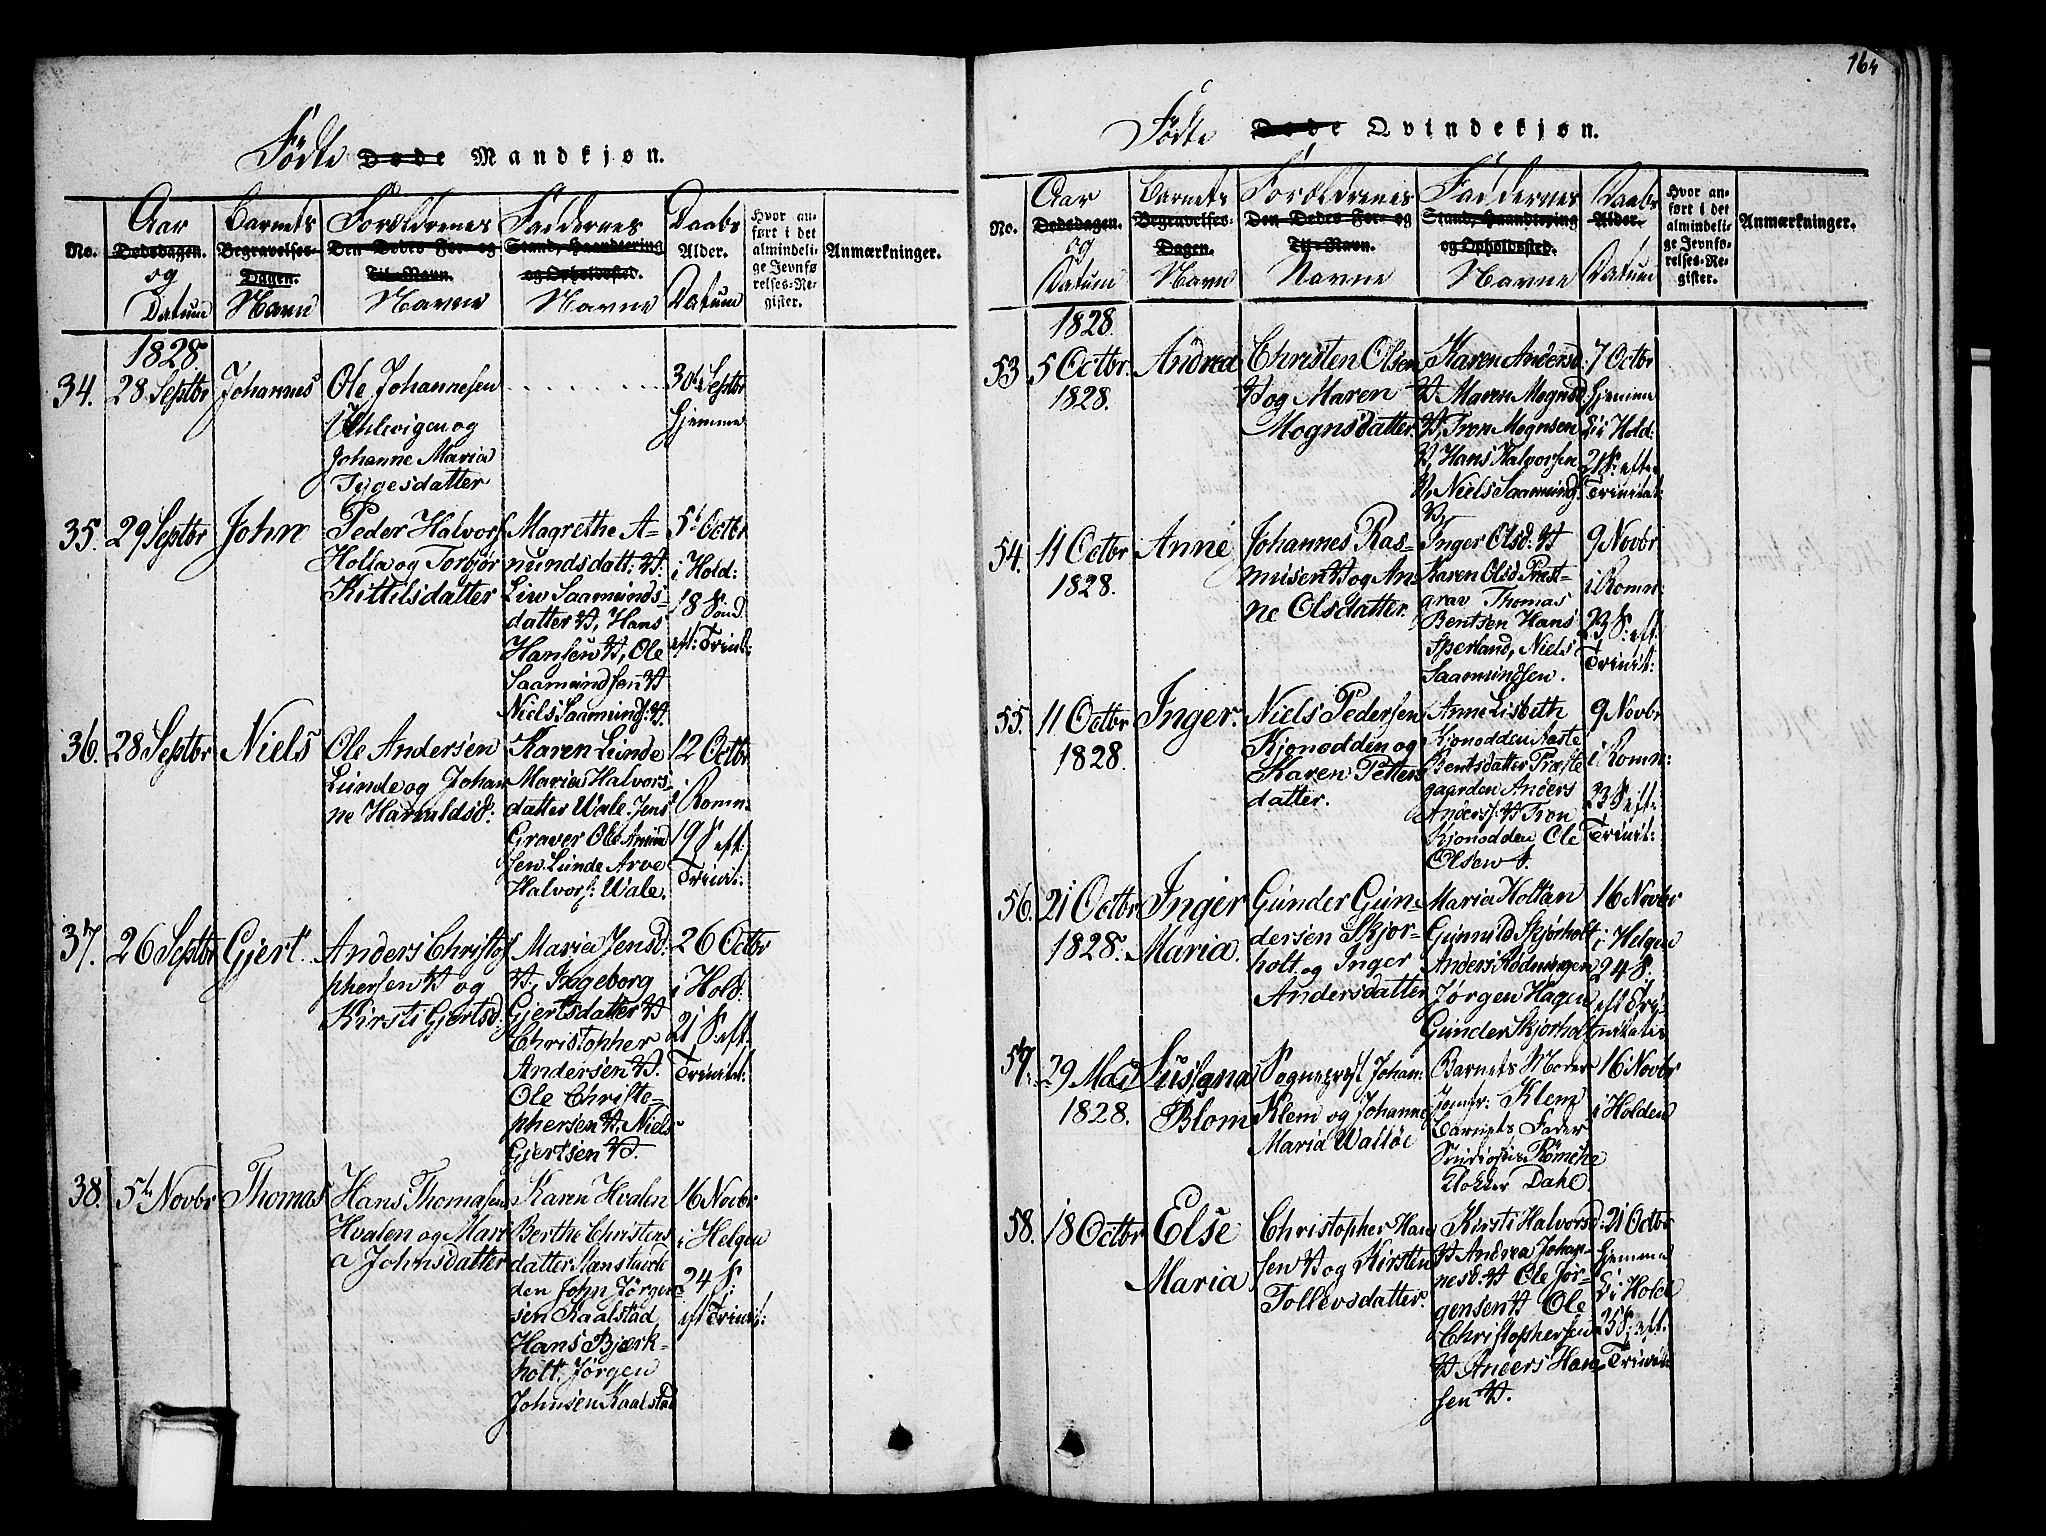 Fødte Døde Mandkjøn.
No.
Aar
Dødsdagen.
og
Datum
Barnets
Begravelses-
Dagen.
Navn
Forældrenes
Den Dødes For- og
Til-Navn.
Navne
Faddernes
Stand, Haandtering
og Opholdssted.
Navne
Daabs
Alder.
Datum
Hvor an-
ført i det
almindeli-
ge Jevnfø
relses-Re-
gister.
Anmærkninger.
1828.
34.
28 Septbr
Johannes
Ole Johannesen
Uhlevigen og
Johanne Maria
Tygesdatter
30 Septbr
hjemme
35.
29 Septbr
John
Peder Halvors
Holla og Torbjør
Kittilsdatter
Magrethe A-
mundsdatt:
Liv Saamunds-
datter, Hans
Hansen, Ole
Saamundsen
Niels Saamunds:
5t Octbr
i Hold:
18 Sønd.
eft: Trinit:
36.
28 Septbr
Niels
Ole Andersen
Lunde og Johan
ne Haraldsd:
Karen Lunde
Maria Halvors-
datter Wale. Jens
Graver Ole Amund
sen Lunde Arve
Halvors: Wale.
12 Octbr
i Romn:
19 S. eft:
Trinit:
37.
26 Septbr
Gjert.
Anders Christof
phersen og
Kirsti Gjertsd:
Maria Jensd:
Ingeborg
Gjertsdatter
Christopher
Andersen
Ole Christo-
phersen, Niels
Gjertsen
26 Octbr
i Hold:
21 S: eft.
Trinitat:
38.
5te Novbr
Thomas
Hans Thomasen
Hvalen og Mari
a Johnsdatter
Karen Hvalen
Berthe Christens
datter
den John Jørgen
sen Kaalstad
Hans Bjerk-
holt. Jørgen
Johnsen Kaalstad
16 Novbr
i Helgen
24 S:
eft Trinit:
164
Fødte Døde Qvindekjøn.
No.
Aar
Dødsdagen.
og
Datum
Barnets
Begravelses-
Dagen.
Navn
Forældrenes
Den Dødes For- og
Til-Navn.
Navne
Faddernes
Stand, Haandtering
og Opholdssted.
Navne
Daabs
Alder.
Datum
Hvor an-
ført i det
almindeli-
ge Jevnfø-
relses-Re-
gister.
Anmærkninger.
1828.
53
5 Octbr.
1828.
Andrea
Christen Olsen
og Maren
Mognsdatter.
Karen Andersd:
Maren Mognsd
Tron Mognsen
Hans Halvorsen
Niels Saamunds:
7 Octbr
hjemme
i Hold:
21 S: efte
Trinitat:
54.
11 Octbr
1828.
Anne
Johannes Ras-
musen og An
ne Olsdatter.
Inger Olsd:
Karen Olsd Præst-
grav Thomas
Bentsen Hans
Sperland, Niels
Saamundsen.
9 Novbr
i Romn:
23 S: eft.
Trinit:
55.
11 Octbr
1828.
Inger.
Niels Pedersen
Kjonodden og
Karen Petters
datter.
Anne Lisbeth
Kjonodden Aaste
Bentsdatter Præste
gaarden Anders
Anders: Tron
Kjonodden Ole
Olsen
9 Novbr
i Romn:
23 S eft:
Trinit:
56.
21 Octbr
1828.
Inger
Maria.
Gunder Gun-
dersen Skjor-
holt og Inger
Andersdatter
Maria Holtan
Gunnild Skjørholt
Anders Rødningen
Jørgen Hagen
Gunder Skjørholt
16 Novbr
i Helgen
24 S.
eft Tri-
nitatis
57.
29 Mai
1828.
Susana
Blom
Sognepræst Johan:
Klem og Johanne
Maria Walløe
Barnets Moder
Jomfr: Klem
Barnets Fader
Klokker Dahl.
16 Novbr
i Holden
58.
18 Octbr
Else
Maria
Christopher Han
sen og Kirsten
Tollevsdatter.
Kirsti Halvorsd:
Andrea Johan-
nesd: Ole Jør-
gensen Ole
Christophersen
Anders Han
sen
21 Octbr
hjemme
i Hold
25 S: eft:
Trinit: